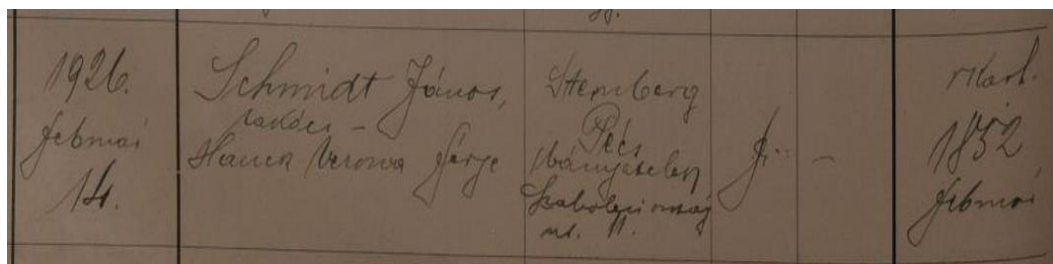 1926.
február
14.
Schmidt János,
takács –
Hauck Veronva férje
Sternberg
Pécs
bányatelep
Szabolcsi ország
út. 11.
f.
–
1852
február